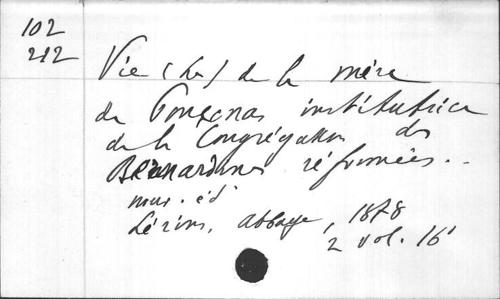 102
212
Vie (La) de la mère
de Ponçonas institutrice
de la Congrégation des
Bernardines réformées..
nouv. éd
Lérins, abbaye, 1878
2 vol. 16°